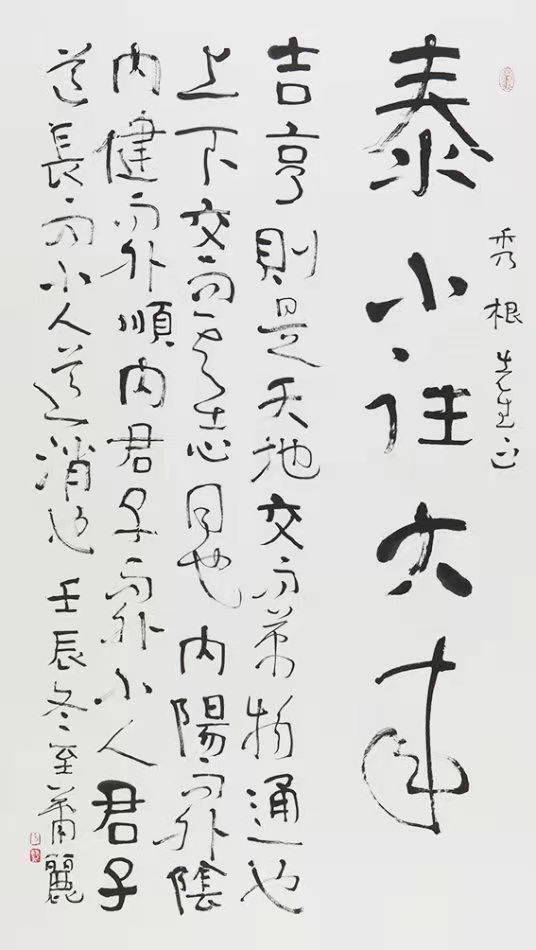 秀根先生正
泰小往大来
吉亨則是天地交而萬物通也
上下交而其志同也内陽而外陰
内健而外順内君子而外小人君子
道長而小人道消也 壬辰冬至蕭麗